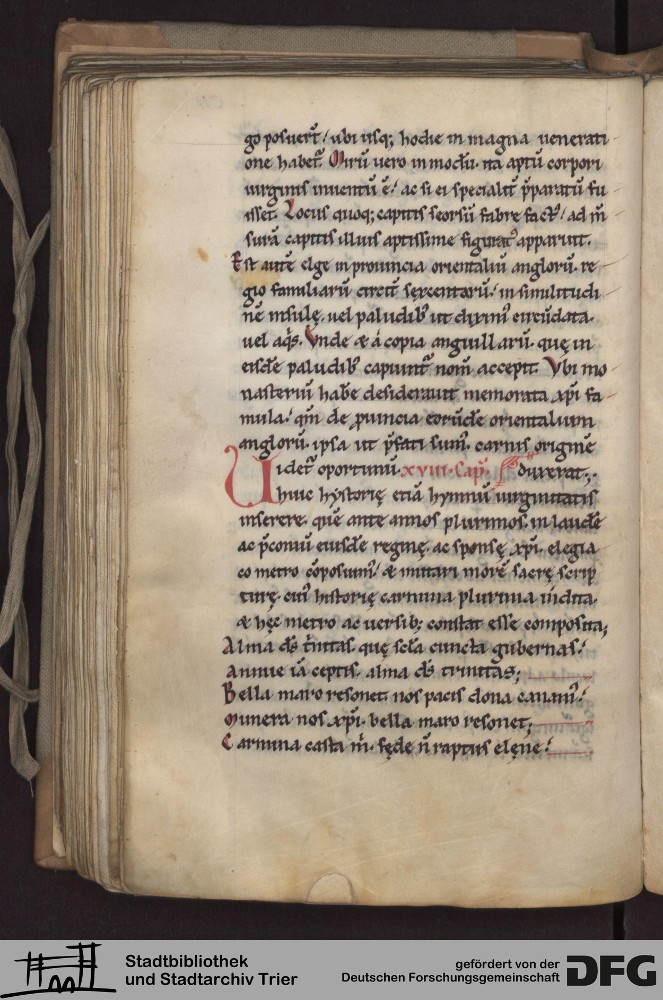 go posuert̄ / ubi usq; hodie in magna uenerati
one habet᷑. Mirū uero in modū. ita aptū corpori
uirginis inuentū ē / ac si ei specialit̄ p̄paratū fu
isset. Locus quoq; capitis seorsū fabre fact᷒ / ad m̄
surā capitis illius aptissime figurat᷒ apparuit.
Est autē elge in prouincia orientaliū anglorū. re
gio familiarū circit̄ sęxcentarū / in similitudi
nē insulę. uel paludib᷒ ut dixim᷒ circūdata.
uel aq̄s. Vnde & a copia anguillarū. quę in
eisdē paludib᷒ capiunt᷑ nom̄ accepit. Vbi mo
nasteriū habe desiderauit memorata xp̄i fa
mula / qm̄ de ꝓuincia eorūdē orientalium
anglorū. ipsa ut p̄fati sum᷒. carnis originē
Videt᷑ oportunū. xviii. Cap̄. duxerat;.
huic hystorię etiā hymnū uirginitatis
inserere. quē ante annos plurimos. in laudē
ac p̄coniū eiusdē reginę. ac sponsę xp̄i. elegia
co metro cōposuim᷒ / & imitari morē sacrę scrip
turę. cui᷒ historię carmina plurima īdita.
& hęc metro ac uersib; constat esse composita;
Alma ds̄ t̄initas. quę scl̄a cuncta gubernas /
Annue iā ceptis. alma ds̄ trinitas;
Bella maro resonet. nos pacis dona canam᷒ /
Munera nos xp̄i. bella maro resonet;
Carmina casta m̄. fędę n̄ raptus elęnę /
Stadtbibliothek
und Stadtarchiv Trier
gefördert von der
Deutschen Forschungsgemeinschaft
DFG